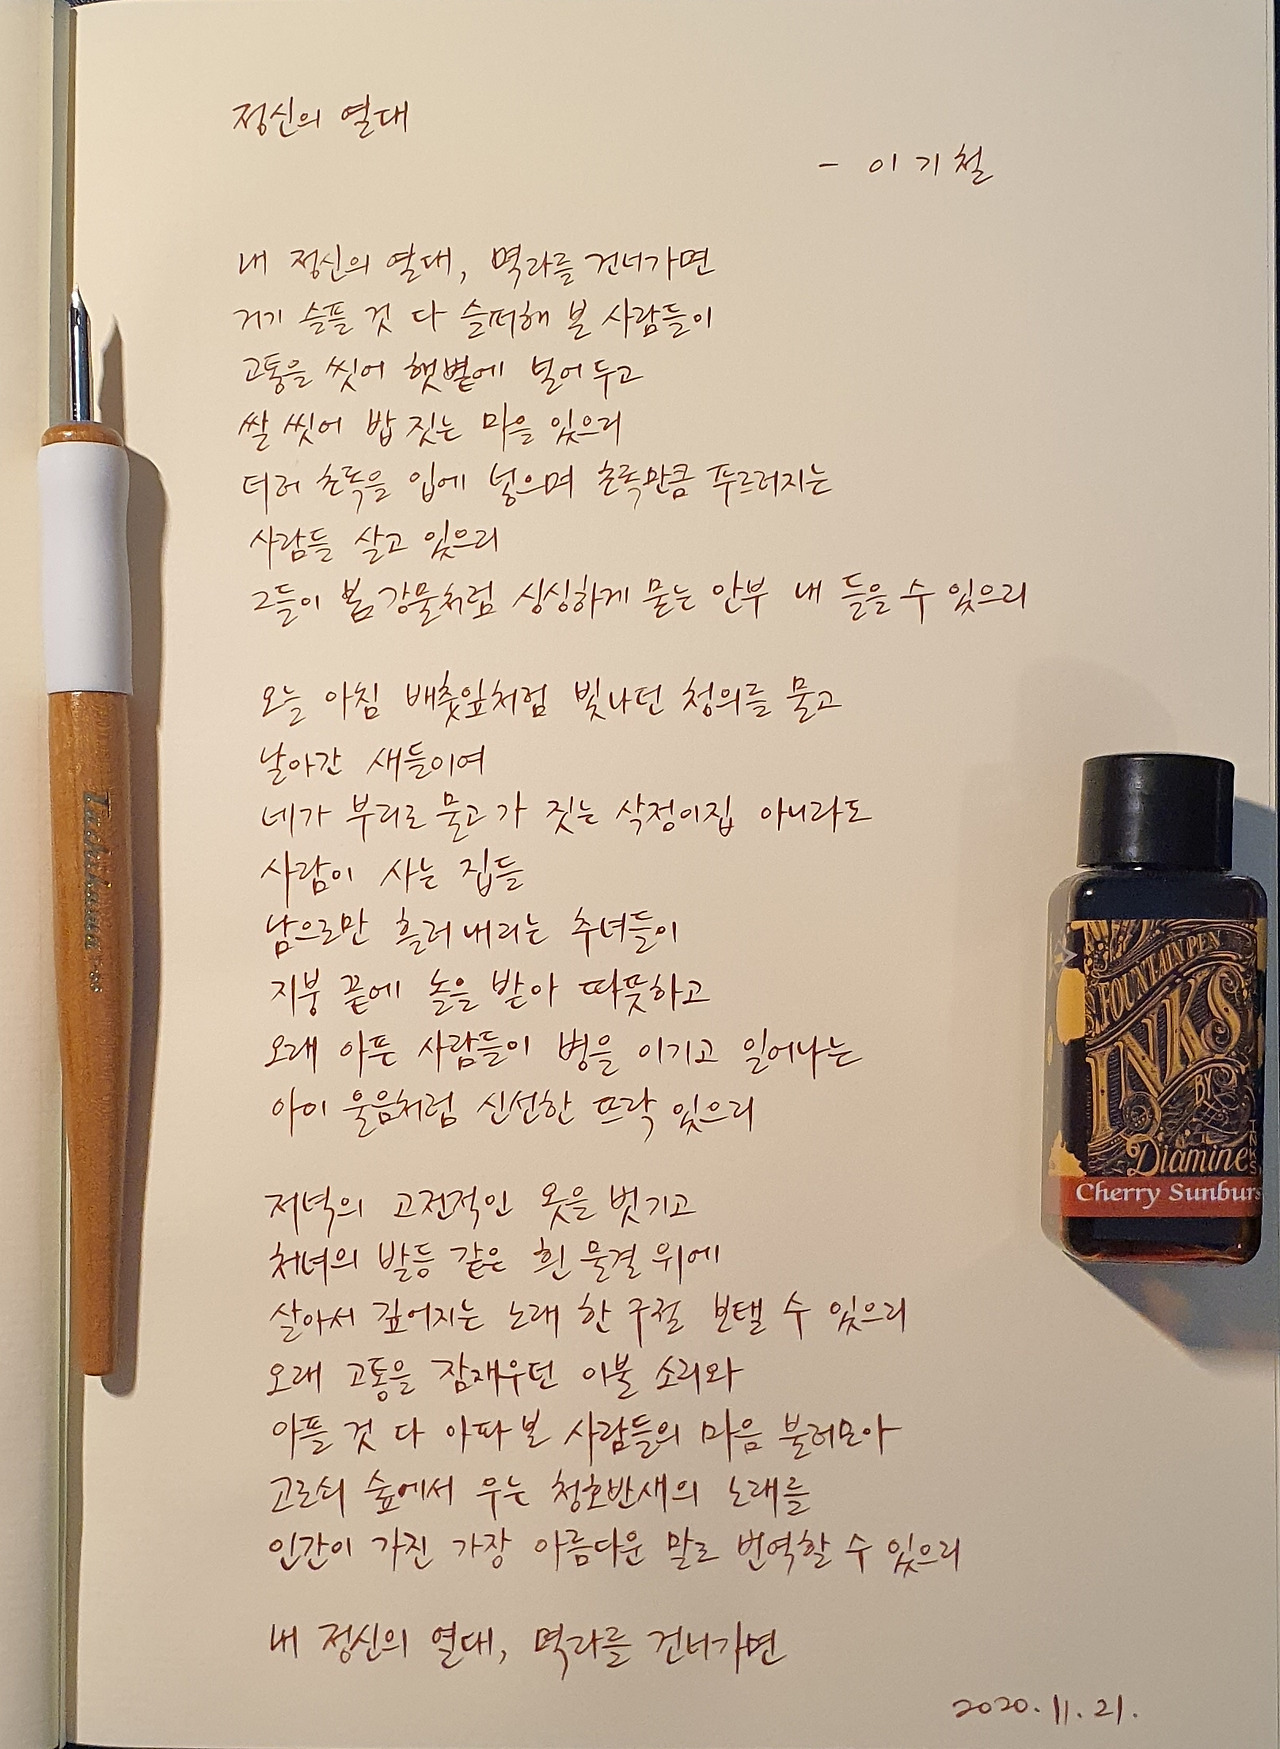 정신의 열대
- 이기철
내 정신의 열대, 멱라를 건너가면
거기 슬플 것 다 슬퍼해 본 사람들이
고통을 씻어 햇볕에 널어두고
쌀 씻어 밥 짓는 마을 있으리
더러 초록을 입에 넣으며 초록만큼 푸르러지는
사람들 살고 있으리
그들이 봄 강물처럼 싱싱하게 묻는 안부 내 들을 수 있으리
오늘 아침 배춧잎처럼 빛나던 청의를 물고
날아간 새들이여
네가 부리로 물고 가 짓는 삭정이집 아니라도
사람이 사는 집들
남으로만 흘러내리는 추녀들이
지붕 끝에 놀을 받아 따뜻하고
오래 아픈 사람들이 병을 이기고 일어나는
아이 울음처럼 신선한 뜨락 있으리
저녁의 고전적인 옷을 벗기고
처녀의 발등 같은 흰 물결 위에
살아서 깊어지는 노래 한 구절 보탤 수 있으리
오래 고통을 잠재우던 이불 소리와
아플 것 다 아파 본 사람들의 마음 불러모아
고로쇠 숲에서 우는 청호반새의 노래를
인간이 가진 가장 아름다운 말로 번역할 수 있으리
내 정신의 열대, 멱라를 건너가면
2020.11.21.
Tachikawa
FOUNTAIN PEN
INKS
BY
Diamine
INKS
Cherry Sunburs